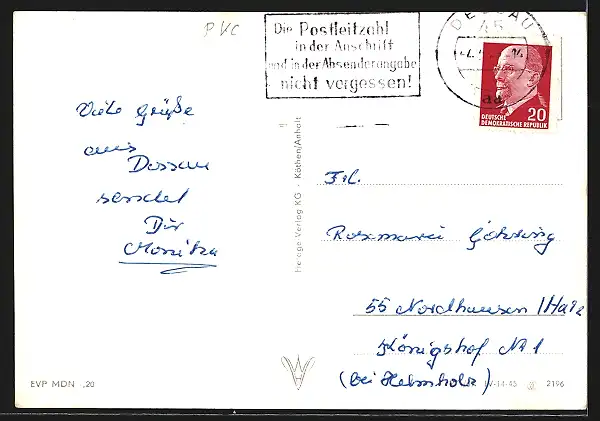 PVC
Die Postleitzahl
in der Anschrift
und in der Absenderangabe
nicht vergessen!
DESSAU
45
aa
20
DEUTSCHE
DEMOKRATISCHE REPUBLIK
Viele Grüße
aus
Dessau
sendet
Dir
Monika
Heroge Verlag KG · Köthen/Anhalt
Frl.
Rosemarie
55 Nordhausen/Harz
Königshof Nr 1
(bei Helmholz)
EVP MDN -,20
IV-14-45 2196